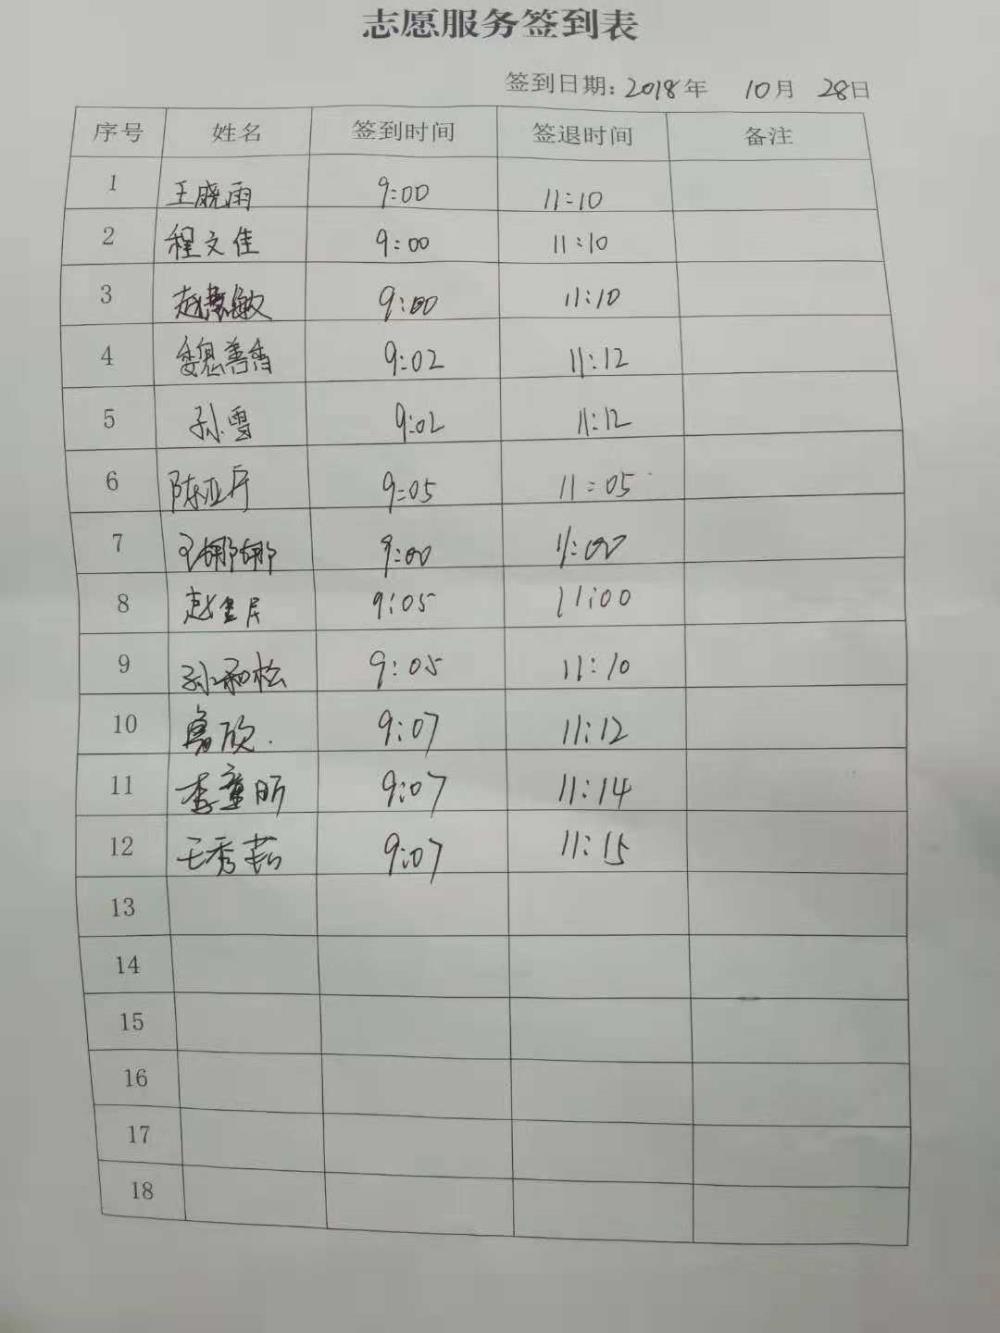 志愿服务签到表
签到日期：2018年 10月 28日
序号 姓名 签到时间 签退时间 备注
1 王晓雨 9:00 11:10
2 程文佳 9:00 11:10
3 赵慧敏 9:00 11:10
4 9:02 11:12
5 孙雪 9:02 11:12
6 陈亚厅 9:05 11:05
7 王娜娜 9:00 11:00
8 9:05 11:00
9 孙和松 9:05 11:10
10 9:07 11:12
11 李童昕 9:07 11:14
12 王秀茹 9:07 11:15
13
14
15
16
17
18